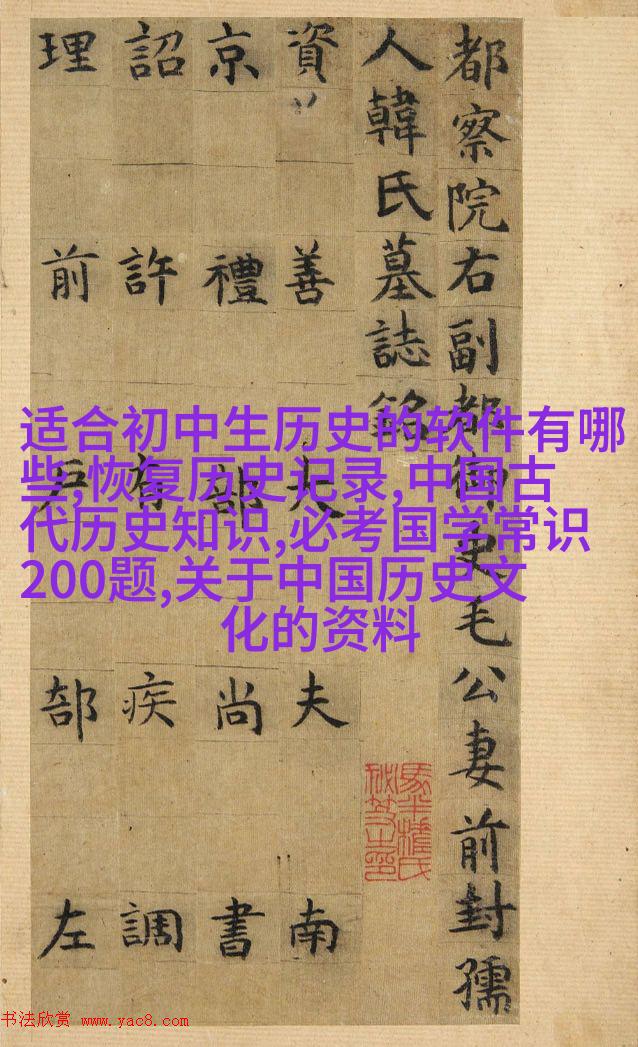 适合初中生历史的软件有哪
些,恢复历史记录,中国古
代历史知识,必考国学常识
200题,关于中国历史文
化的资料
都察院右副都御史毛公妻前封孺
人韓氏墓誌銘
資善大夫南
京禮部尚書
詔許有疾調
理前戶部左
书法欣赏 www.yac8.com